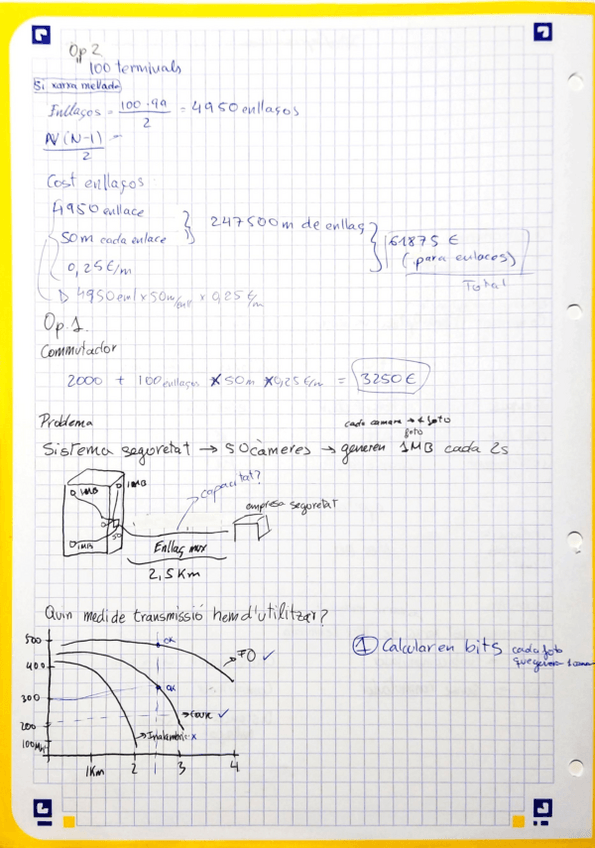 Op 2
100 terminals
Si xarxa mellada
Enllaços = 100·99 / 2 = 4950 enllaços
N(N-1) / 2 =
Cost enllaços
4950 enllace
50m cada enlace
247500m de enllaç
0,25€/m
61875 €
(para enlaces)
Total
4950 enl x 50m/enll x 0,25 €/m
Op. 1.
Commutador
2000 + 100 enllaços x 50m x 0,25 €/m = 3250€
Problema
cada camara → 1 foto
foto
Sistema segoretat → 50 càmeres → generen 1MB cada 2s
capacitat?
1MB
1MB
empresa segoretat
50
1MB
Enllaç mux
2,5 Km
Quin medi de transmissió hem d'utilitzar?
500
ok
FO ✓
① Calcular en bits cada foto
que genera 1
400
ok
300
200
coure ✓
100
Inalambric x
1Km 2 3 4